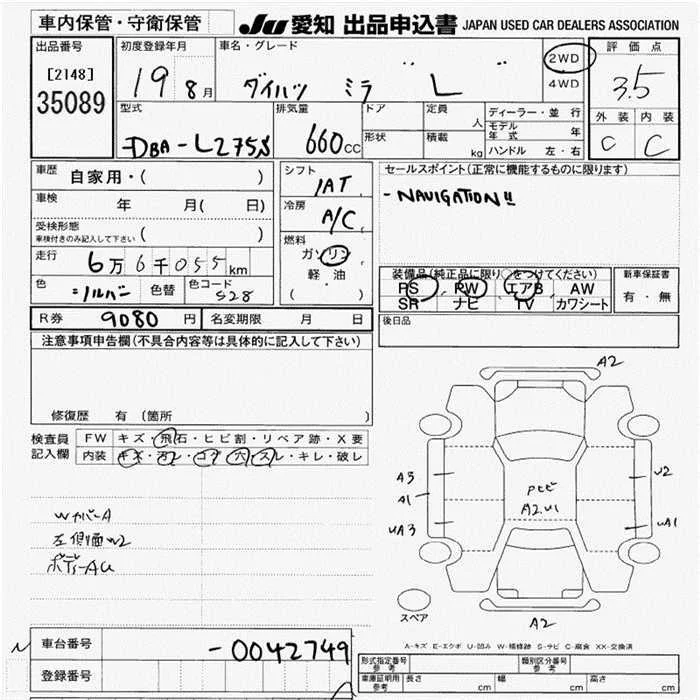 車内保管・守衛保管
JU 愛知 出品申込書 JAPAN USED CAR DEALERS ASSOCIATION
出品番号 初度登録年月 車名・グレード 2WD 評価点
[2148] 4WD
35089 19 8月 ダイハツ ミラ L 3.5
型式 排気量 ドア 定員 人 ディーラー・並行 外装 内装
モデル年式 年
DBA-L275S 660cc 形状 積載 kg ハンドル 左・右 C C
車歴 自家用・( ) シフト 1AT セールスポイント(正常に機能するものに限ります)
車検 年 月( 日) 冷房 A/C - NAVIGATION!!
受検形態
車検付きのみ記入して下さい ( ) 燃料
走行 6万6千055km ガソリン
軽油
( )
装備品(純正品に限り○をつけてください) 新車保証書
色 シルバー 色替 色コード S28 PS PW エアB AW 有・無
SR ナビ TV カワシート
R券 9080円 名変期限 月 日 後日品
注意事項申告欄(不具合内容等は具体的に記入して下さい)
修復歴 有 (箇所 )
検査員 FW キズ・飛石・ヒビ割・リペア跡・X要
記入欄 内装 キズ・汚レ・コゲ・穴・スレ・キレ・破レ
WカバーA
左側面W2
ボディーAU
A2
A3
A1
UA3
PセビA2.U1
U2
UA1
A2
スペア
A-キズ E-エクボ U-凹み W-補修跡 S-サビ C-腐食 XX-交換済
車台番号 -0042749
登録番号
型式指定番号 参考 類別区分番号 参考
車庫証明用 参考 長さ cm 幅 cm 高さ cm